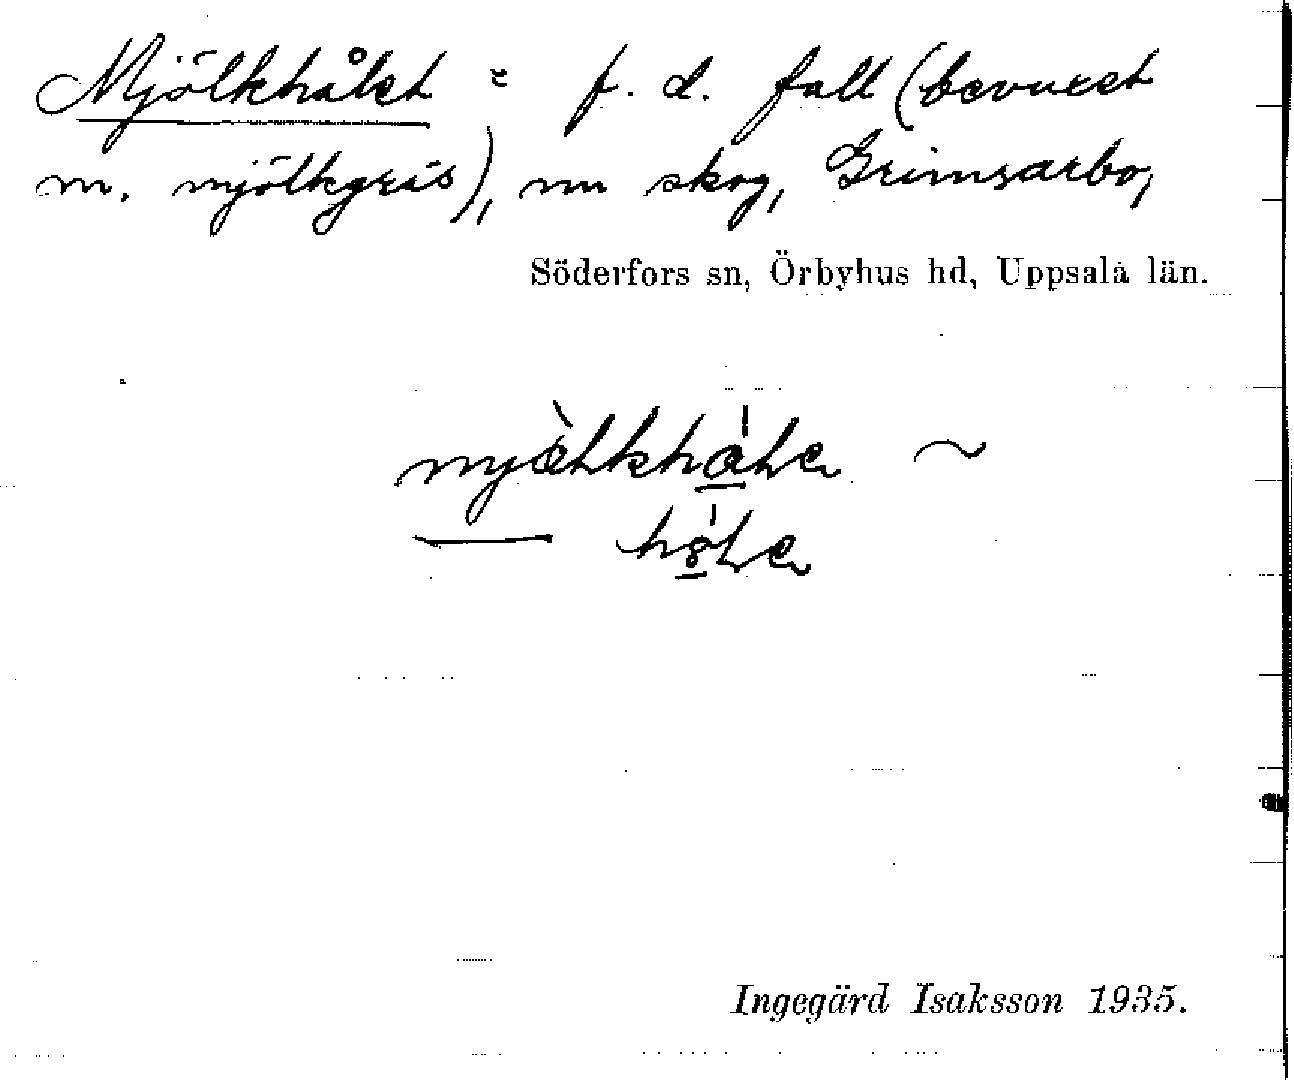 Mjölkhålet = f. d. fall (bevuxet
m. mjölkgräs), nu skog, Grimsarbo,
Söderfors sn, Örbyhus hd, Uppsala län.
Ingegärd Isaksson 1935.